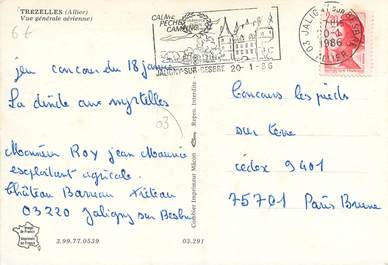 TREZELLES (Allier)
Vue générale aérienne)
6€
CALME
PECHE
CAMPING
JALIGNY-SUR-BESBRE 20-1-86
03 JALIGNY SUR BESBRE
20-1
1986
ALLIER
jeu concours du 18 janvier
La dinde aux myrtelles
03
Monsieur Roy jean Maurice
exploitant agricole
Château Barreau
03220 Jaligny sur Besbre
Concours les pieds
sur terre
cédex 9401
75701 Paris Brune
Combier Imprimeur Mâcon
Repro. Interdite
3.99.77.0539
03.291